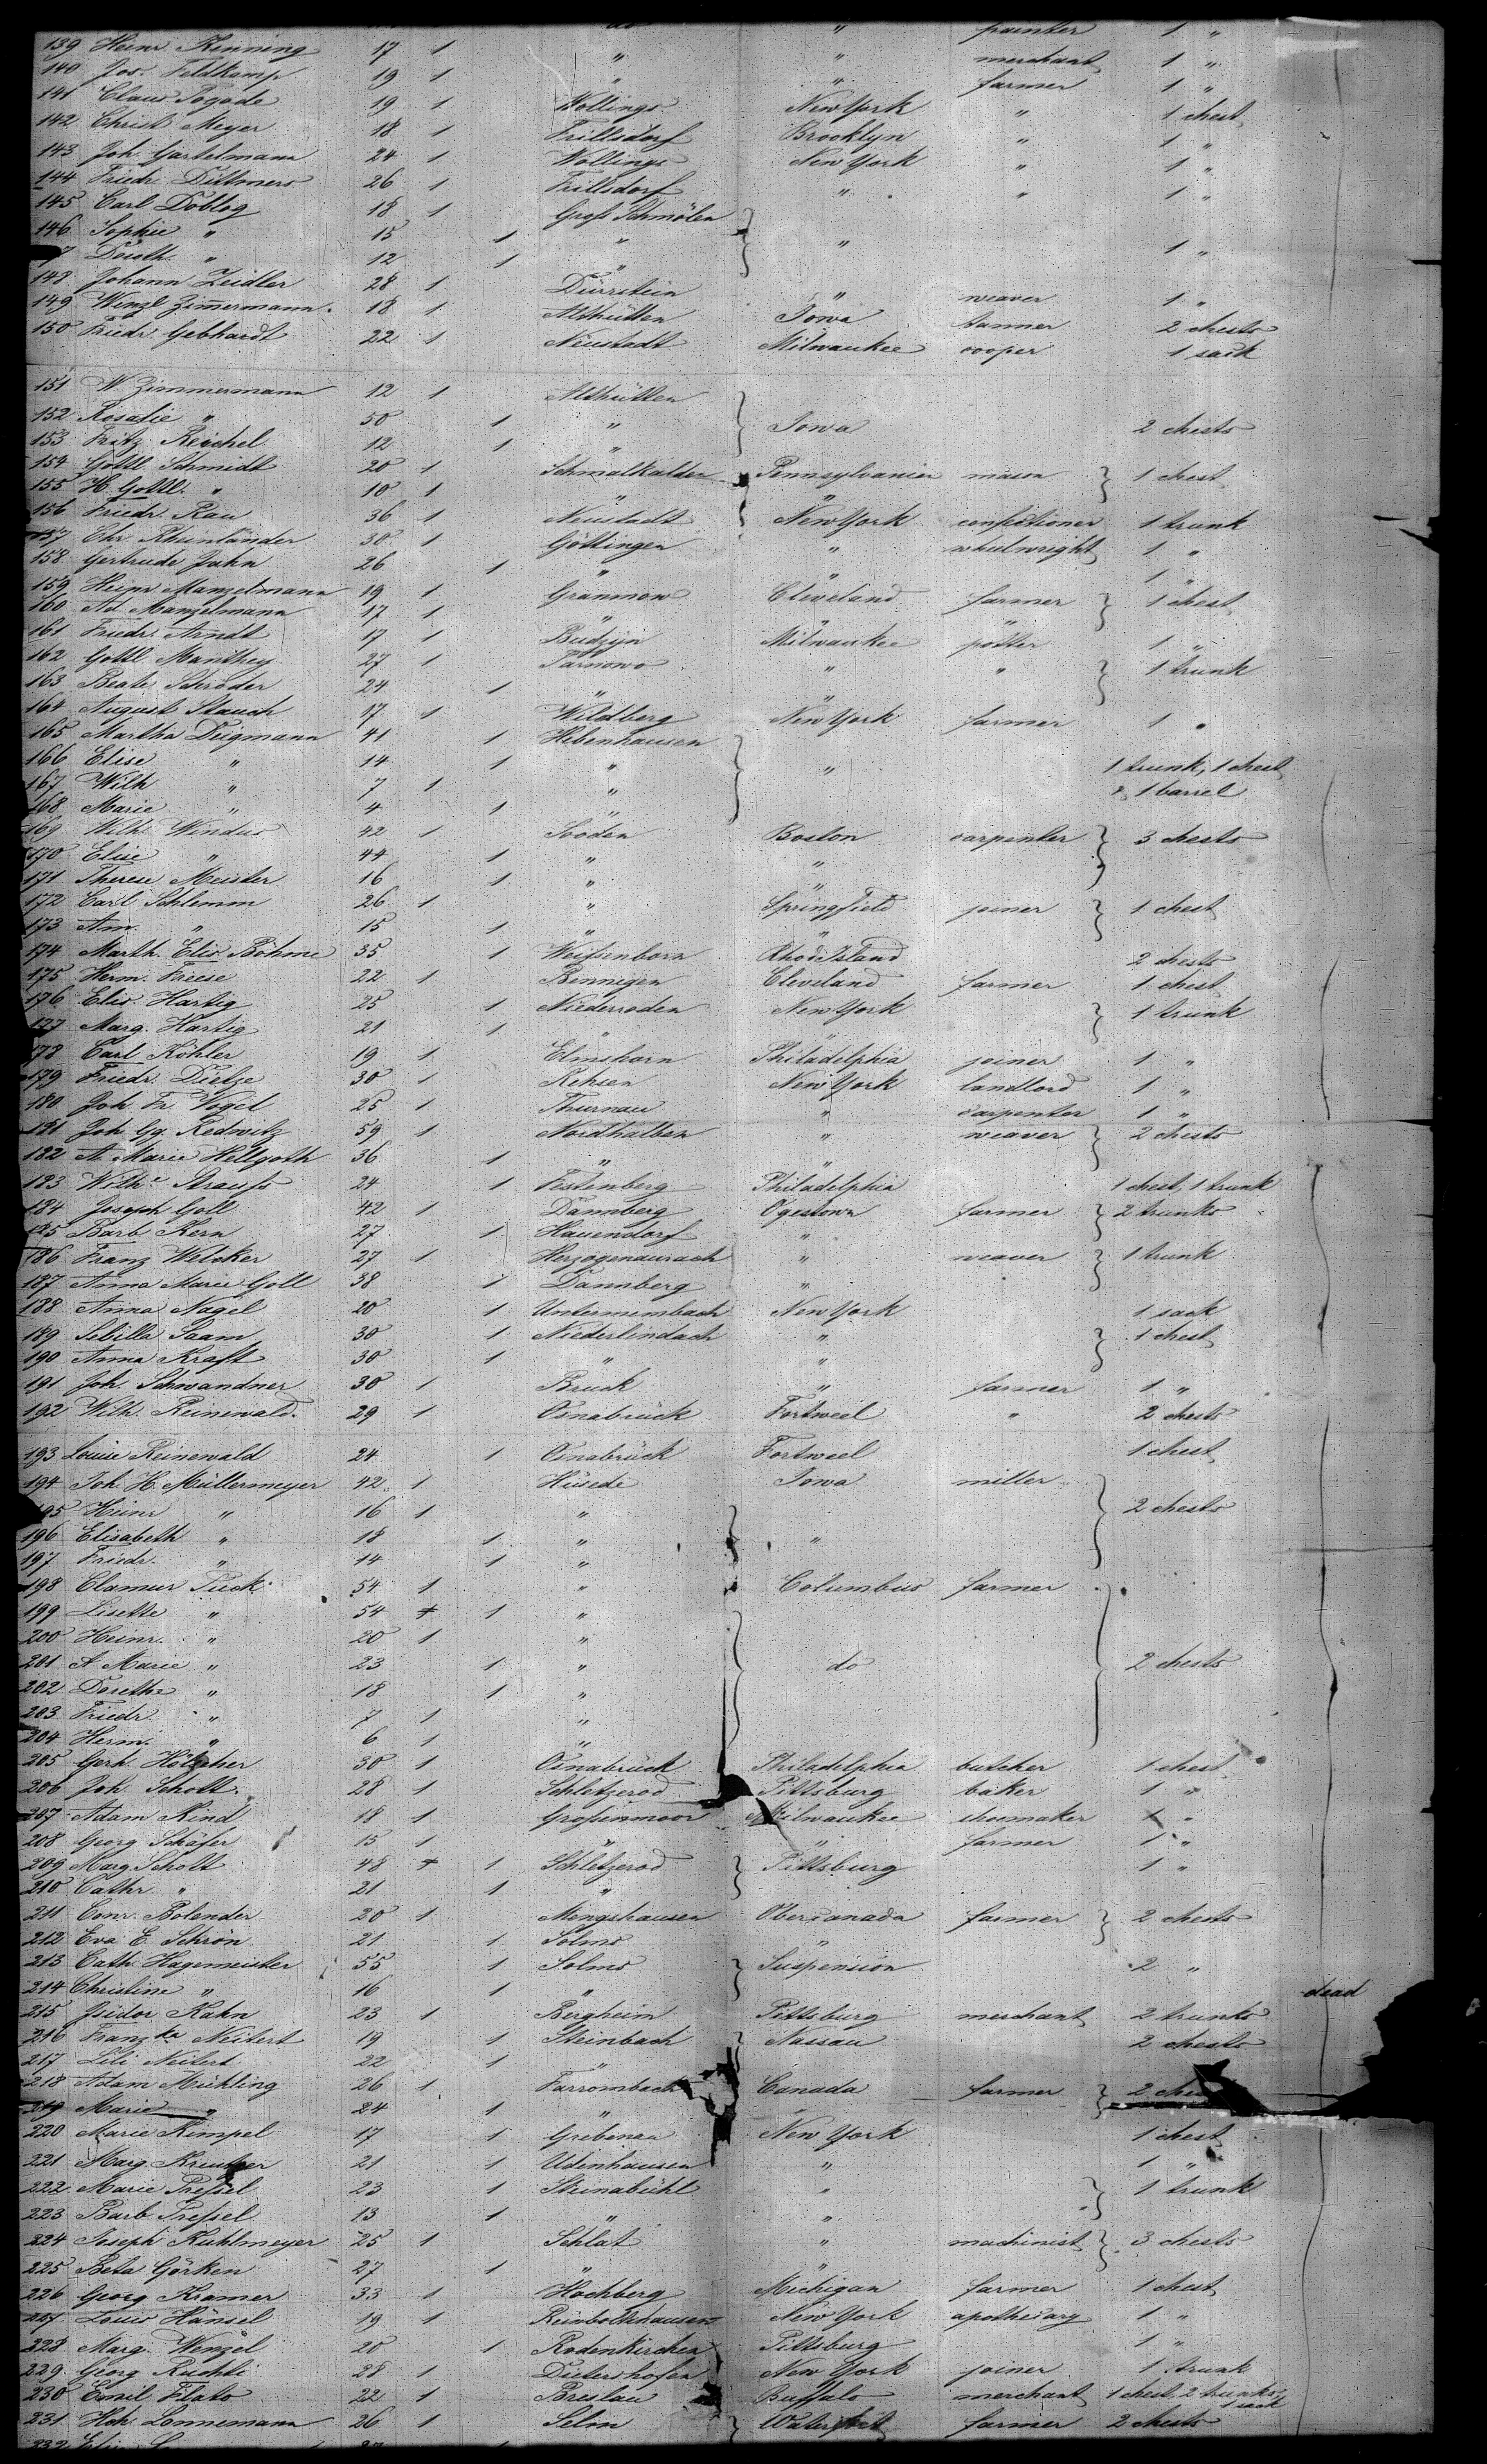 do " painter 1 "
139 Heinr Henning 17 1 " " merchant 1 "
140 Jos. Feldkamp 19 1 " " farmer 1 "
141 Claus Pogode 19 1 Wollings New York " 1 chest
142 Christ Meyer 18 1 Frillsdorf Brooklyn " 1 "
143 Joh Gartelmann 24 1 Wollings New York " 1 "
144 Friedr Dittmers 26 1 Frillsdorf " " 1 "
145 Carl Doblog 18 1 Groß Schmölen
146 Sophie " 15 1 " " 1 "
7 Doroth. " 12 1 "
148 Johann Zeidler 28 1 Dürrstein " weaver 1 "
149 Wenzl Zimmermann 18 1 Althütten Iowa tanner 2 chests
150 Friedr Gebhardt 22 1 Neustadt Milwaukee cooper 1 sack
151 W Zimmermann 12 1 Althütten
152 Rosalie " 50 1 " Iowa 2 chests
153 Fritz Reichel 12 1 "
154 Gottl. Schmidt 20 1 Schmalkalden Pennsylvanien mason 1 chest
155 H. Gottl. " 10 1 " "
156 Friedr. Rau 36 1 Neustadt New York confectioner 1 trunk
157 Chr Rheinländer 30 1 Göttingen " wheelwright 1 "
158 Gertrude Jahn 26 1 " " 1 "
159 Heinr Manzelmann 19 1 Grammow Cleveland farmer 1 chest
160 Ad Manzelmann 17 1 " " "
161 Friedr. Arndt 17 1 Budzijn Milwaukee potter 1 "
162 Gottl Manthey 27 1 Parnowo " " 1 trunk
163 Beate Schröder 24 1 " "
164 August Stauch 17 1 Wildberg New York farmer 1 "
165 Martha Diegmann 41 1 Hebenhausen
166 Elise " 14 1 " " 1 trunk, 1 chest
167 Wilh " 7 1 " & 1 barrel
168 Marie " 4 1 "
169 Wilh. Windus 42 1 Sooden Boston carpenter 3 chests
170 Elise " 44 1 " "
171 Therese Meister 16 1 " "
172 Carl Schlemm 26 1 " Springfield joiner 1 chest
173 Am. " 15 1 " "
174 Marth. Elis. Böhme 35 1 Weißenborn Rhod Island 2 chests
175 Herm. Friese 22 1 Bennigen Cleveland farmer 1 chest
176 Elis. Hartig 25 1 Niederroden New York 1 trunk
177 Marg. Hartig 21 1 " "
178 Carl Köhler 19 1 Elmshorn Philadelphia joiner 1 "
179 Friedr. Dietze 30 1 Rehsen New York landlord 1 "
180 Joh Fr. Vogel 25 1 Thurnau " carpenter 1 "
181 Joh Gg. Redwitz 59 1 Nordhalben " weaver 2 chests
182 A. Marie Hellgoth 36 1 " "
183 Wilhe Strauß 24 1 Festenberg Philadelphia 1 chest, 1 trunk
184 Joseph Goll 42 1 Dannberg Ogestown farmer 2 trunks
185 Barb Kern 27 1 Hauendorf "
186 Franz Welcker 27 1 Herzogenaurach " weaver 1 trunk
187 Anna Marie Goll 38 1 Dannberg "
188 Anna Nagel 20 1 Untermembach New York 1 sack
189 Sibilla Saam 30 1 Niederlindach " 1 chest
190 Anna Kraft 30 1 " "
191 Joh. Schwandner 30 1 Bruck " farmer 1 "
192 Wilh. Reinewald 29 1 Osnabrück Fortweel " 2 chests
193 Louise Reinewald 24 1 Osnabrück Fortweel 1 chest
194 Joh. H. Müllermeyer 42 1 Hüsede Iowa miller
195 Heinr " 16 1 " 2 chests
196 Elisabeth " 18 1 " "
197 Friedr. " 14 1 "
198 Clamur Tieck 54 1 " Columbus farmer
199 Lisette " 54 1 "
200 Heinr. " 20 1 "
201 A Marie " 23 1 " do 2 chests
202 Dorethe " 18 1 "
203 Friedr. " 7 1 "
204 Herm. " 6 1 "
205 Gerh. Hölscher 30 1 Osnabrück Philadelphia butcher 1 chest
206 Joh Schott 28 1 Schletzerod Pittsburg baker 1 "
207 Adam Kind 18 1 Großenmoor Milwaukee shoemaker 1 "
208 Georg Schäfer 15 1 " " farmer 1 "
209 Marg. Schott 48 1 Schletzerod Pittsburg 1 "
210 Cathr. " 21 1 "
211 Conr. Bolender 20 1 Mengshausen Obercanada farmer 2 chests
212 Eva E. Schrön 21 1 Solms "
213 Cath. Hagemeister 55 1 Solms Suspension 2 "
214 Christine " 16 1 " dead
215 Isidor Kahn 23 1 Bergheim Pittsburg merchant 2 trunks
216 Franzka Neitert 19 1 Steinbach Nassau 2 chests
217 Lili Neitert 22 1 "
218 Adam Michling 26 1 Farrombach Canada farmer 2 ches
219 Marie " 24 1 " "
220 Marie Kimpel 17 1 Grebenau New York 1 chest
221 Marg. Kreutzer 21 1 Udenhausen " 1 "
222 Marie Preßel 23 1 Steinabühl " 1 trunk
223 Barb Preßel 13 1 " "
224 Joseph Kuhlmeyer 25 1 Schlat " machinist 3 chests
225 Beta Görken 27 1 " "
226 Georg Kramer 33 1 Hochberg Michigan farmer 1 chest
227 Louis Hänsel 19 1 Reinboldshausen New York apothecary 1 "
228 Marg. Wenzel 20 1 Rodenkirchen Pittsburg 1 "
229 Georg Ruchti 28 1 Dietershofen New York joiner 1 trunk
230 Emil Flato 22 1 Breslau Buffalo merchant 1 chest 2 trunks, 1 sack
231 Hch. Lonnemann 26 1 Selm farmer 2 chests
232